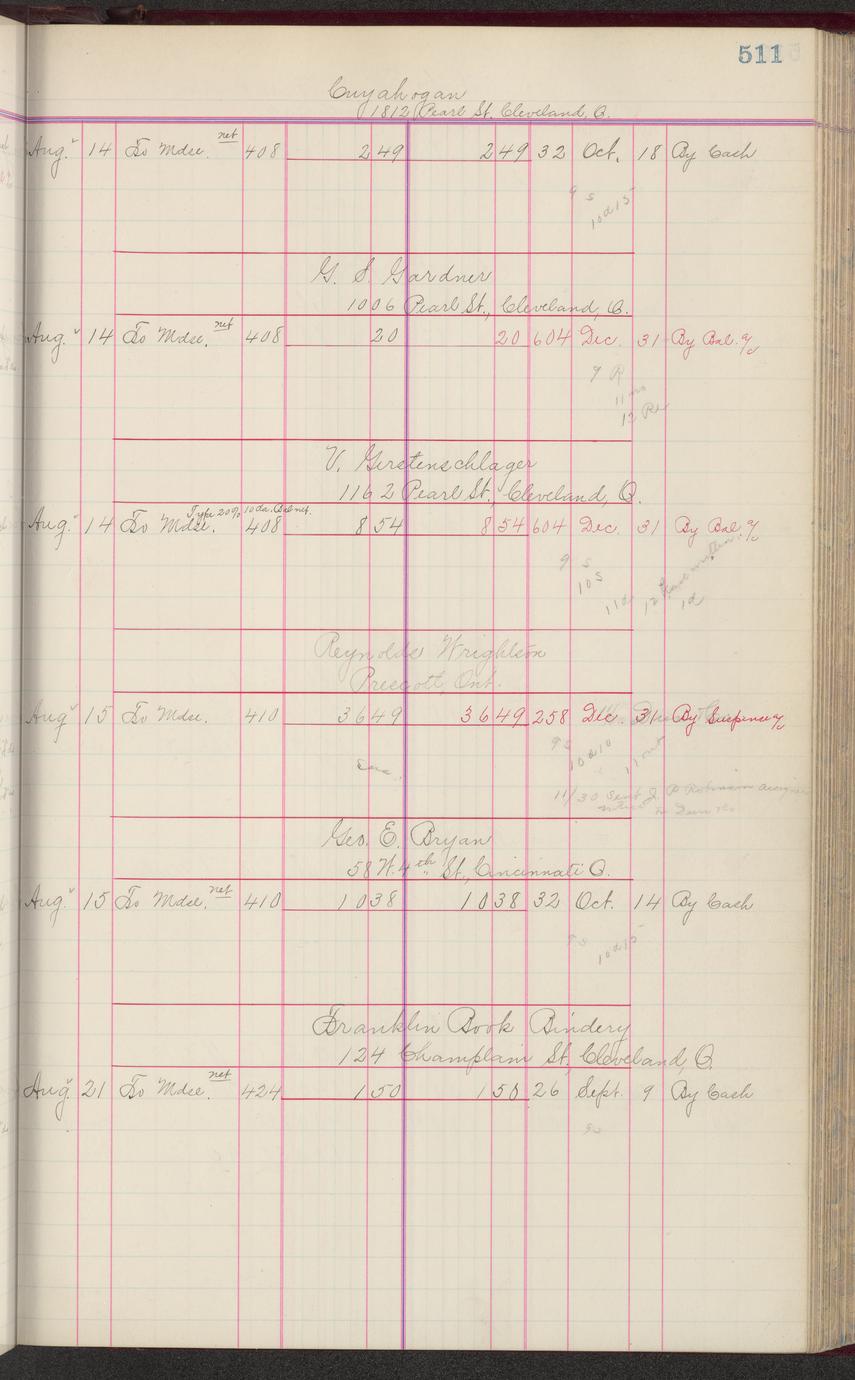 511
Cuyahogan
1812 Pearl St. Cleveland, O.
Aug. 14 To Mdse. net 408 2 49 2 49 32 Oct. 18 By Cash
9 s
10d15
G. S. Gardner
1006 Pearl St., Cleveland, O.
Aug. 14 To Mdse. net 408 20 20 604 Dec. 31 By Bal. a/c
9 R
11
12
V. Gerstenschlager
1162 Pearl St., Cleveland, O.
Type 20% 10 da. Bal net.
Aug. 14 To Mdse. 408 8 54 8 54 604 Dec. 31 By Bal. a/c
9 s
10 s
11d 12 1d
Reynolds Wrightson
Prescott, Ont.
Aug 15 To Mdse. 410 36 49 36 49 258 Dec. 31 By Suspense a/c
9 s
10d10
11/30 Sent J. P. Robinson
Geo. E. Bryan
58 W. 4th St., Cincinnati O.
Aug. 15 To Mdse. net 410 10 38 10 38 32 Oct. 14 By Cash
9 s 10d15
Franklin Book Bindery
124 Champlain St., Cleveland, O.
Aug. 21 To Mdse. net 424 1 50 1 50 26 Sept. 9 By Cash
9s